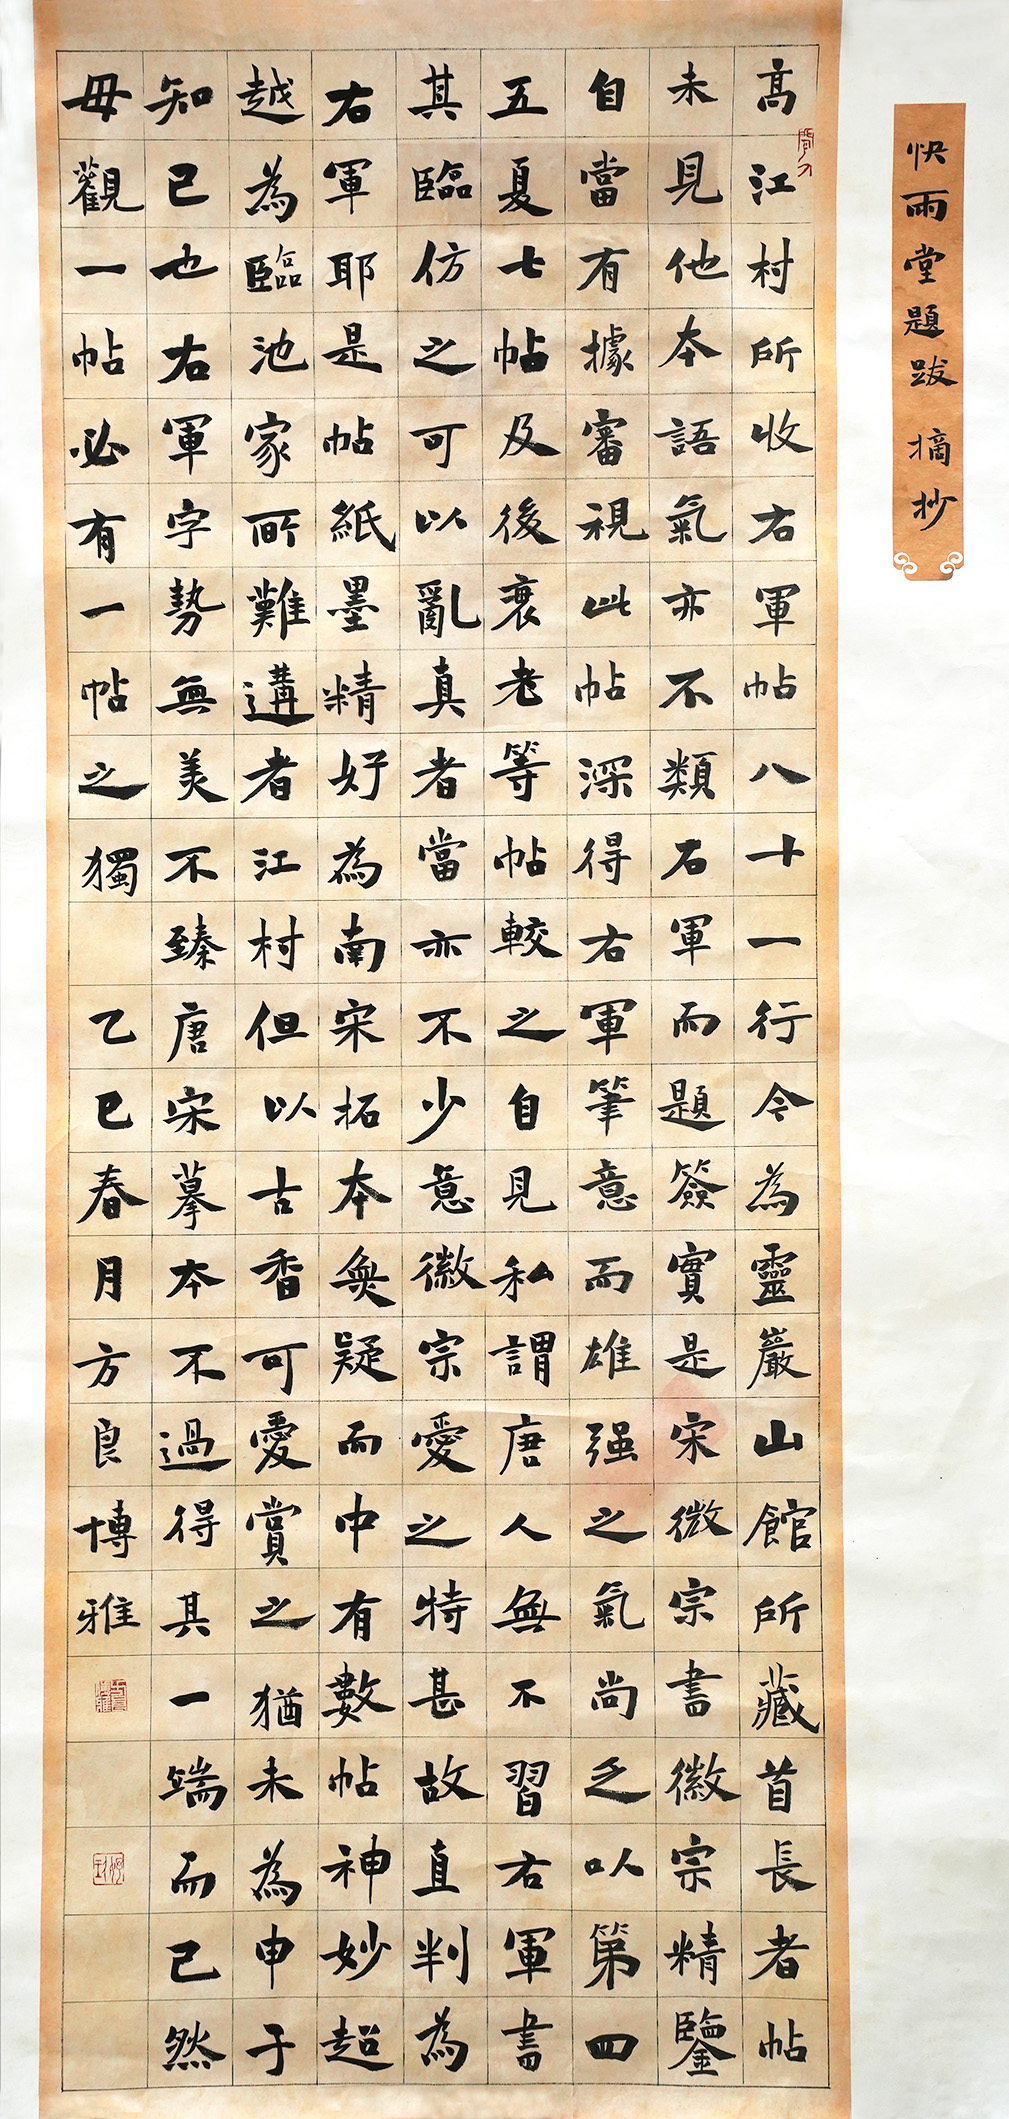 快雨堂題跋 摘抄
高江村所收右軍帖八十一行今為靈巖山館所藏首長者帖
未見他本語氣亦不類右軍而題簽實是宋微宗書徽宗精鑒
自當有據審視此帖深得右軍筆意而雄强之氣尚乏以第四
五夏七帖及後衰老等帖較之自見私謂唐人無不習右軍書
其臨仿之可以亂真者當亦不少意徽宗愛之特甚故直判為
右軍耶是帖紙墨精好為南宋拓本無疑而中有數帖神妙超
越為臨池家所難遘者江村但以古香可愛賞之猶未為申于
知己也右軍字勢無美不臻唐宋摹本不過得其一端而已然
毋觀一帖必有一帖之獨 乙巳春月方良博雅